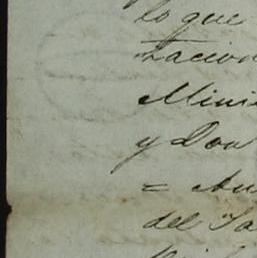 lo que
nacion
Minis
y Don
= Au
del Ta